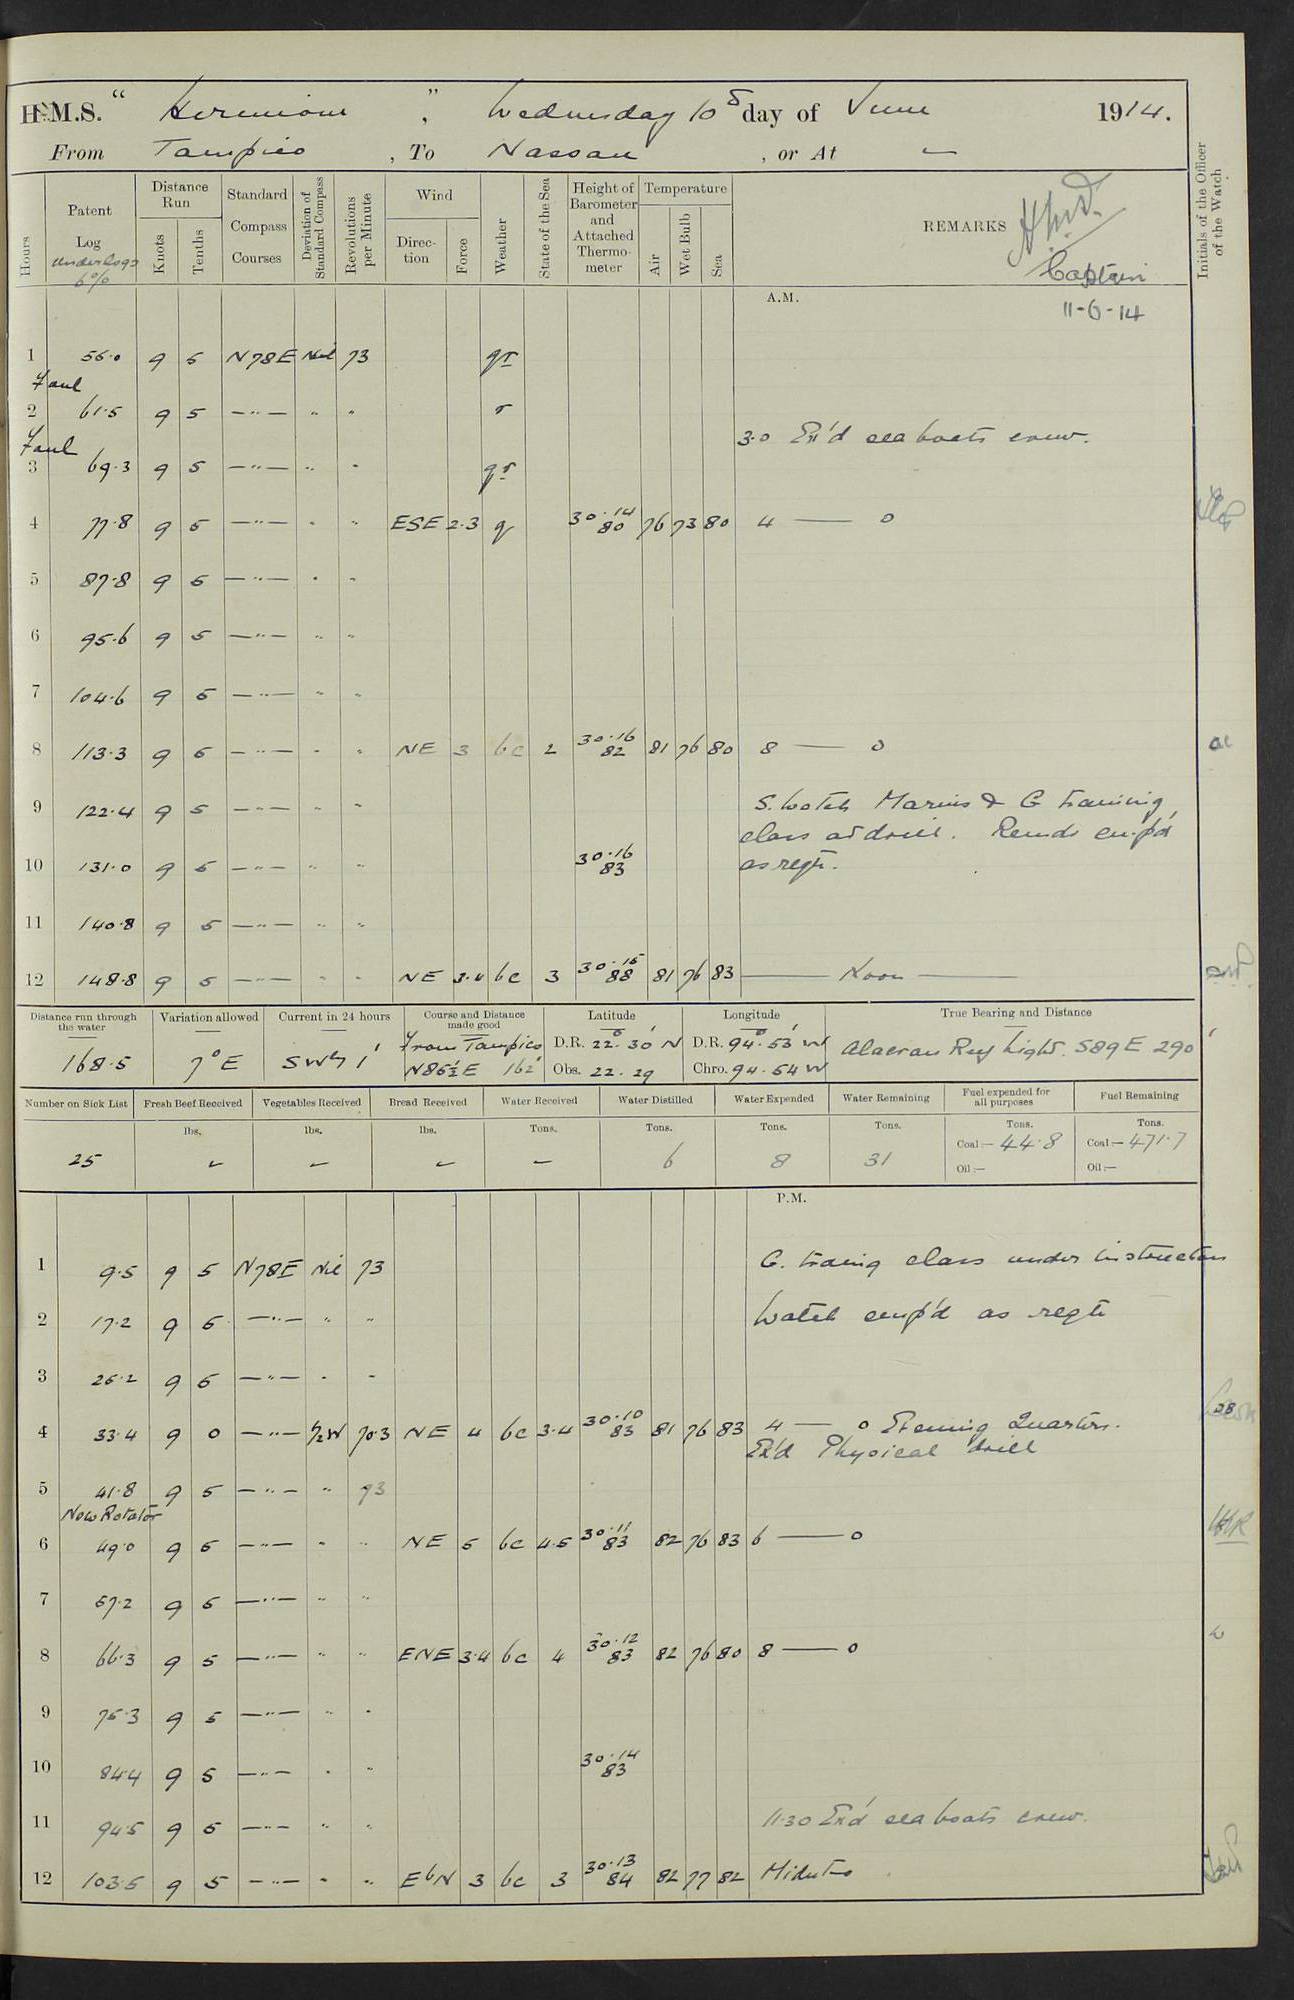 H.M.S. " Hermione ", Wednesday 10th day of June 1914.
From Tampico, To Nassau, or At —
Hours
Patent Log
underlogs 6%
Distance Run
Knots
Tenths
Standard Compass Courses
Deviation of Standard Compass
Revolutions per Minute
Wind
Direction
Force
Weather
State of the Sea
Height of Barometer and Attached Thermometer
Temperature
Air
Wet Bulb
Sea
REMARKS
Captain
11-6-14
Initials of the Officer of the Watch
A.M.
1 55.0 9 5 N78E Nil 73 qr
Foul
2 61.5 9 5 —"— " " r
Foul
3.0 Ex'd sea boats crew.
3 69.3 9 5 —"— " " qr
4 77.8 9 5 —"— " " ESE 2.3 q 30.14 80 76 73 80 4 — 0
5 87.8 9 5 —"— " "
6 95.6 9 5 —"— " "
7 104.6 9 5 —"— " "
8 113.3 9 5 —"— " " NE 3 bc 2 30.16 82 81 76 80 8 — 0
9 122.4 9 5 —"— " " S. Watch Marines & G training
class at drill. Remdr emp'd
10 131.0 9 5 —"— " " 30.16 83 as reqte.
11 140.8 9 5 —"— " "
12 148.8 9 5 —"— " " NE 3.4 bc 3 30.15 88 81 76 83 — Noon —
Distance run through the water
168.5
Variation allowed
7° E
Current in 24 hours
SWby 1'
Course and Distance made good
From Tampico
N86½E 162'
Latitude
D.R. 22° 30' N
Obs. 22. 29
Longitude
D.R. 94° 53' W
Chro. 94. 54 W
True Bearing and Distance
Alacran Reef Light. S89E 290'
Number on Sick List
25
Fresh Beef Received
lbs.
Vegetables Received
lbs.
Bread Received
lbs.
Water Received
Tons.
Water Distilled
Tons.
6
Water Expended
Tons.
8
Water Remaining
Tons.
31
Fuel expended for all purposes
Tons.
Coal:— 44.8
Oil:—
Fuel Remaining
Tons.
Coal:— 471.7
Oil:—
P.M.
1 9.5 9 5 N78E Nil 73 G. traing class under instruction
2 17.2 9 5 —"— " " Watch emp'd as reqte
3 25.2 9 5 —"— " "
4 33.4 9 0 —"— ½W 70.3 NE 4 bc 3.4 30.10 83 81 76 83 4 — 0 Evening Quarters.
Ex'd Physical drill
5 41.8 9 5 —"— " 73
New Rotator
6 49.0 9 5 —"— " " NE 5 bc 4.5 30.11 83 82 76 83 6 — 0
7 57.2 9 5 —"— " "
8 66.3 9 5 —"— " " ENE 3.4 bc 4 30.12 83 82 76 80 8 — 0
9 75.3 9 5 —"— " "
10 84.4 9 5 —"— " " 30.14 83
11 94.5 9 5 —"— " " 11.30 Ex'd sea boats crew.
12 103.5 9 5 —"— " " EbN 3 bc 3 30.13 84 82 77 82 Midnte